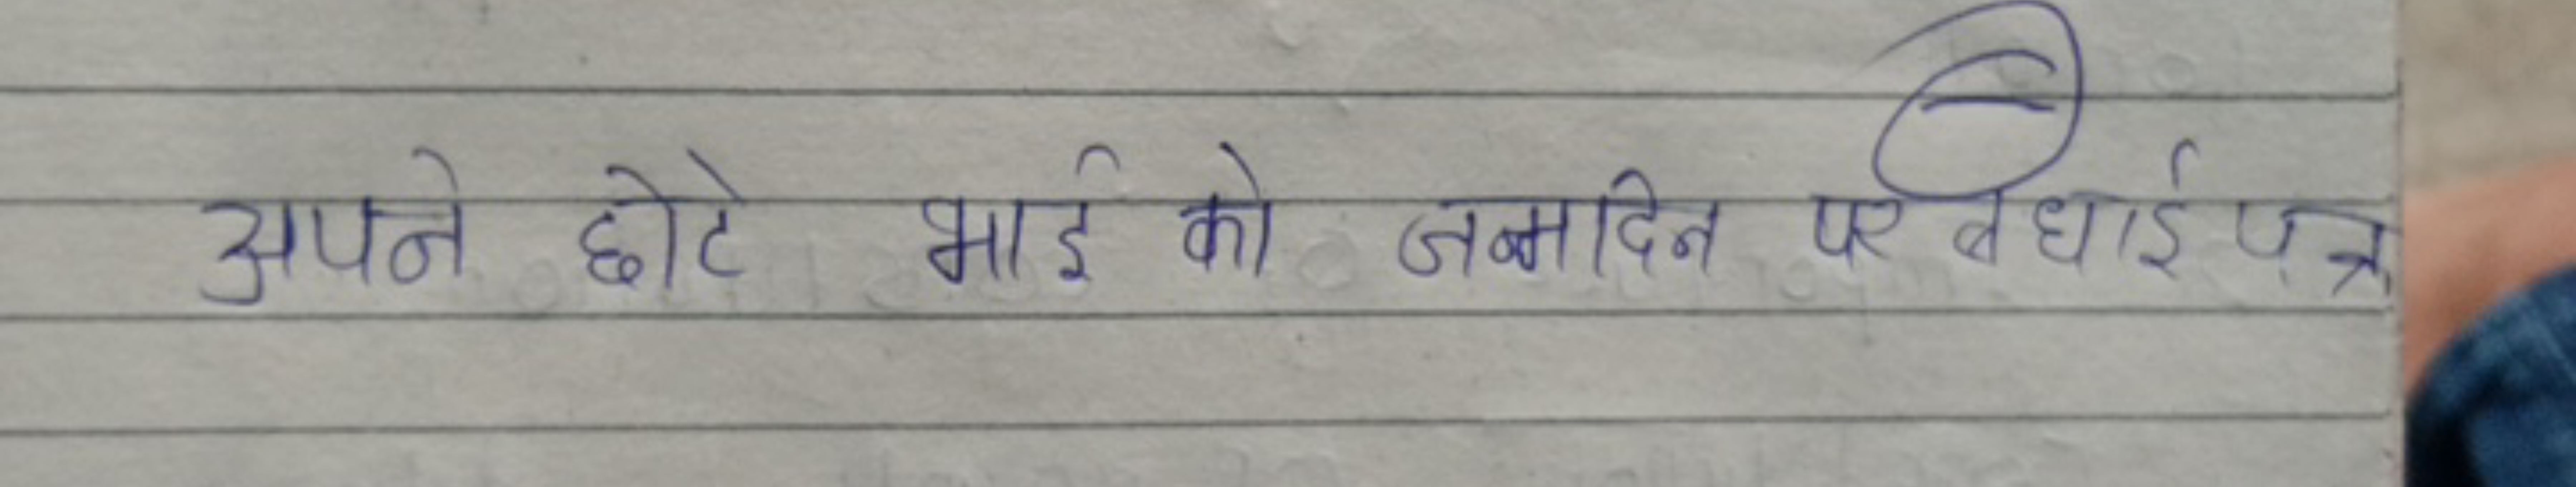 अपने छोटे भाई को जन्मदिन पर बधाई पत्र